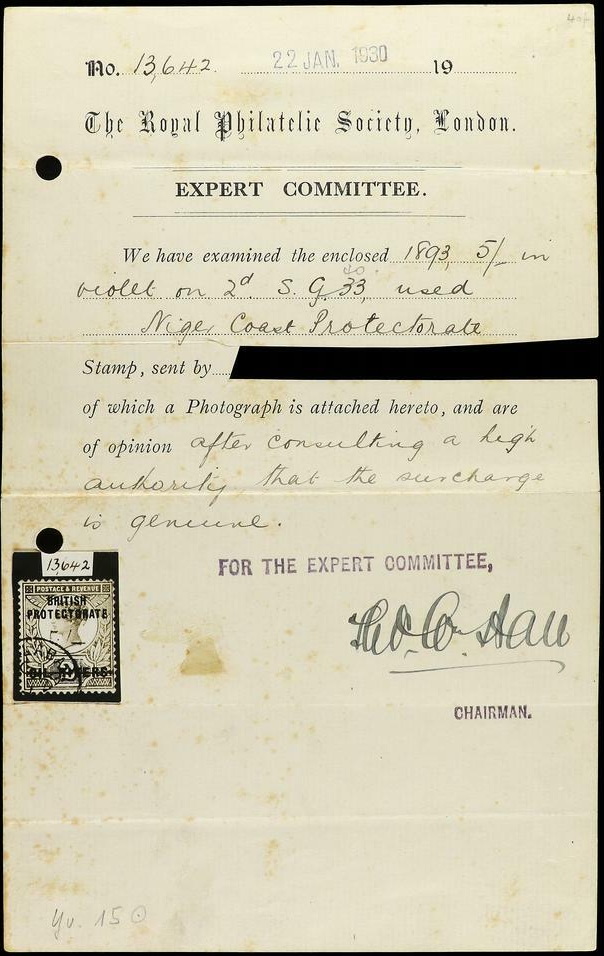 40/-
No. 13,642. 22 JAN. 1930 19
The Royal Philatelic Society, London.
EXPERT COMMITTEE.
We have examined the enclosed 1893, 5/- in
40
violet on 2d. S. G. 33, used
Niger Coast Protectorate
Stamp, sent by
of which a Photograph is attached hereto, and are
of opinion after consulting a high
authority that the surcharge
is genuine.
13,642
POSTAGE & REVENUE
BRITISH
PROTECTORATE
OIL RIVERS
FOR THE EXPERT COMMITTEE,
Thos. Wm. Hall
CHAIRMAN.
Yv. 150